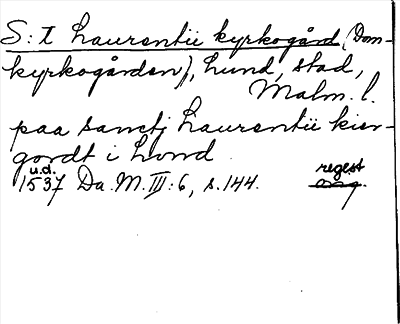 S:t Laurentii kyrkogård (Dom-
kyrkogården), Lund, stad,
Malm. l.
paa sanctj Laurentii kier-
gordt i Lvnd
u.d. regest
1537 Da. M. III: 6, s. 144. ang.